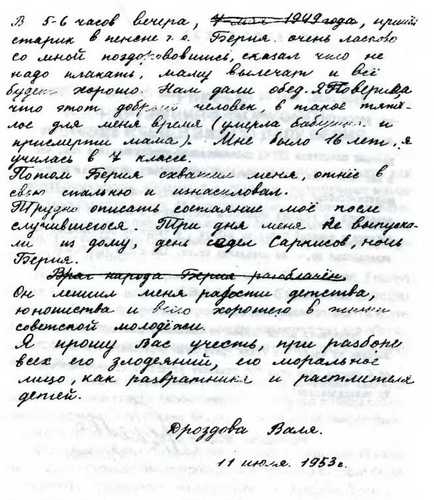 В 5-6 часов вечера, 7 мая 1949 года, пришел
старик в пенсне т.е. Берия. очень ласково
со мной поздорововшись, сказал что не
надо плакать, маму вылечат и всё
будет хорошо. Нам дали обед. Я Поверила
что этот добрый человек, в такое тяжё-
лое для меня время (умерла бабушка и
присмерти мама). Мне было 16 лет, я
училась в 7 классе.
Потом Берия схватил меня, отнёс в
свою спальню и изнасиловал.
Трудно описать состояние моё после
случившегося. Три дня меня не выпуска-
ли из дому, день сидел Саркисов, ночь
Берия.
Враг народа Берия разоблачён.
Он лишил меня радости детства,
юношества и всего хорошего в жизни
советской молодёжи.
Я прошу Вас учесть, при разборе
всех его злодеяний, его моральное
лицо, как развратника и растлителя
детей.
Дроздова Валя.
11 июля. 1953 г.